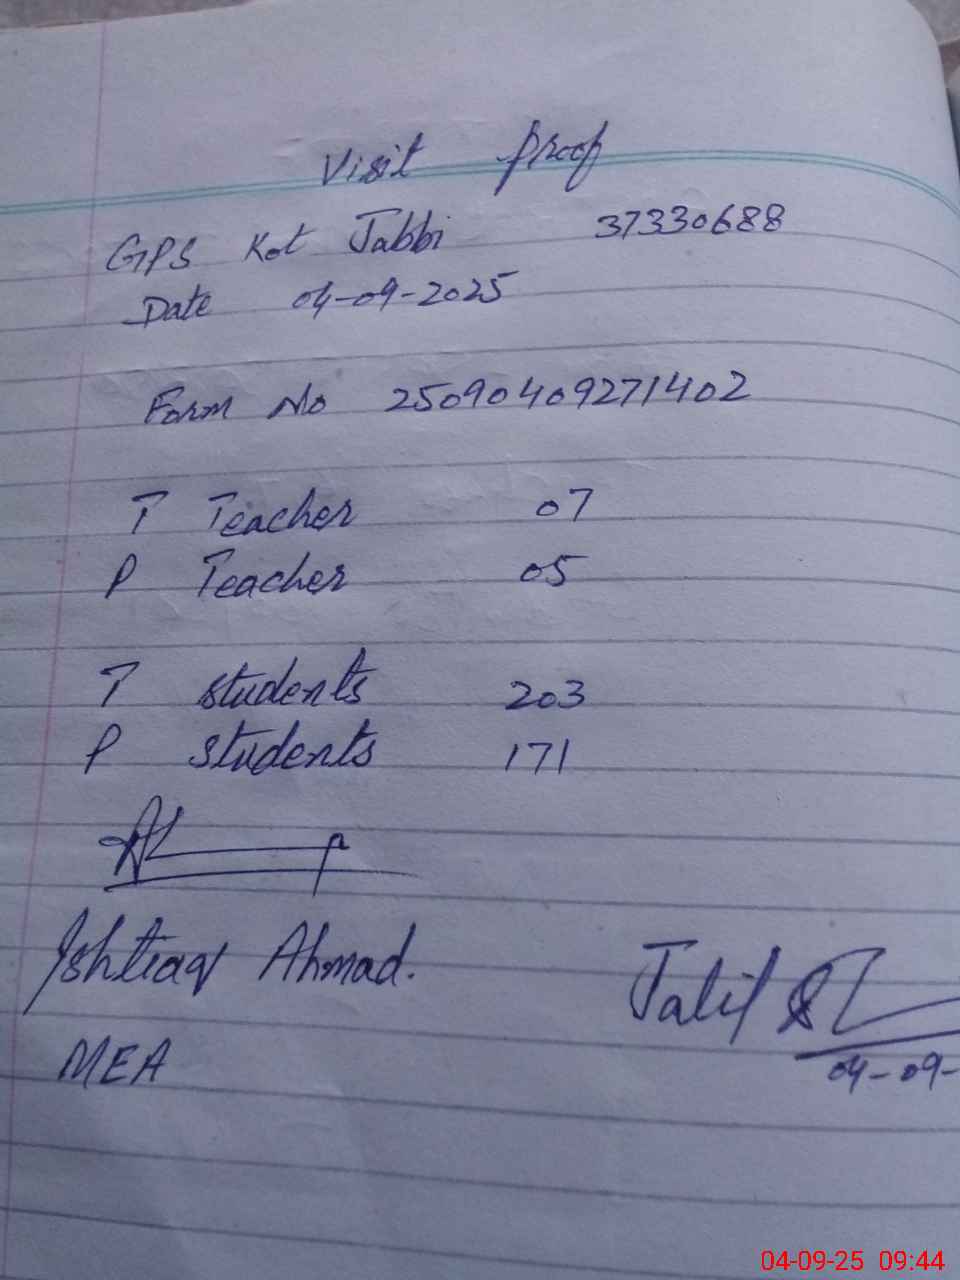 Visit Proof
GPS Kot Jabbi 37330688
Date 04-09-2025
Form No 25090409271402
T Teacher 07
P Teacher 05
T students 203
P students 171
Ishtiaq Ahmad.
MEA
04-09-
04-09-25 09:44